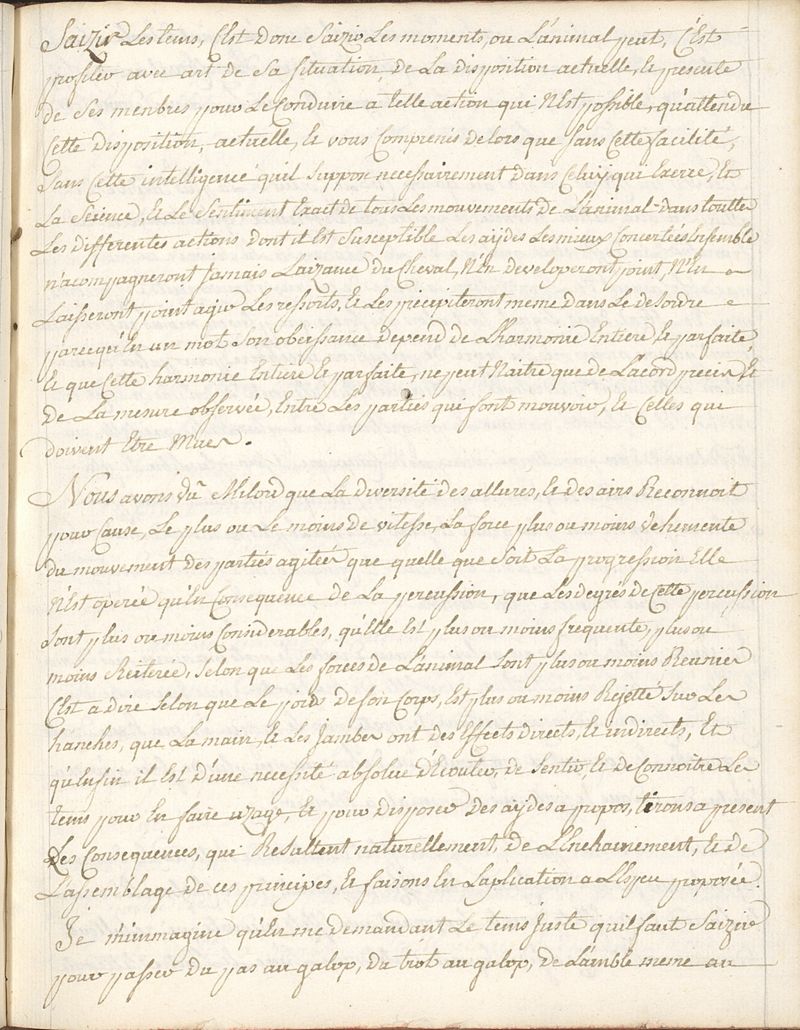 Saizir Les tems, C'Est donc Saizir Les moments, ou L'animal peut, C'Est
profiter avec art de Sa situation, de La disposition actuelle, Et presente
de Ses menbres pour Le Conduire a telle action qui N'Est possible, qu'attendu
Cette disposition, actuelle, Et vous Comprenés de lors que Sans Cette facilité,
Sans Cette intelligence qu'il Suppose necessairement dans Celuy qui Exerce, Et
La Science, Et Le Sentiment Exact de tous Les mouvements de L'animal dans toutte
Les differentes actions dont il Est Susceptible Les aÿdes Les mieux Concertées Ensemble
n'acompagneront jamais L'aizance du Cheval, N'En developeront point, N'En
Laisseront point agir Les ressorts, Et Les precipiteront meme dans Le desordre
parcequ'En un mot Son obeissance depend de L'harmonie Entiere Et parfaite,
Et que Cette harmonie Entiere Et parfaite, ne peut Naitre que de L'acord precis, Et
de La mesure observée, Entre Les parties qui font mouvoir, Et Celles qui
doivent Etre Mues.
Nous avons vû Milord que La diversité des allures, Et des airs Reconnoit
pour Cause, Le plus ou Le moins de vitesse, La force plus ou moins vehemente
du mouvement des parties agitées que quelle que Soit La progression Elle
N'Est operée qu'En Consequence de La percussion, que Les degrés de Cette percussion
Sont plus ou moins Considerables, qu'Elle Est plus ou moins frequente, plus ou
moins Reiterée, Selon que Les forces de L'animal Sont plus ou moins Reunies
C'Est a dire Selon que Le poids de Son Corps, Est plus ou moins Rejetté Sur Les
hanches, que La main, Et Les Jambes ont des Effects directs, Et indirects, Et
qu'Enfin il Est d'une necessité absolue d'Ecouter, de Sentir, Et de Connoitre Les
tems pour En faire uzage, Et pour disposer des aÿdes a propos, tirons a present
Les Consequences, qui Resultent naturellement, de L'Enchainement, Et de
L'assemblage de ces principes, Et faisons En L'aplication a L'Espece proposée.
Je m'immagine qu'En me demandant Le tems juste qu'il faut Saizir
pour passer du pas au galop, du trôt au galop, de L'amble meme au